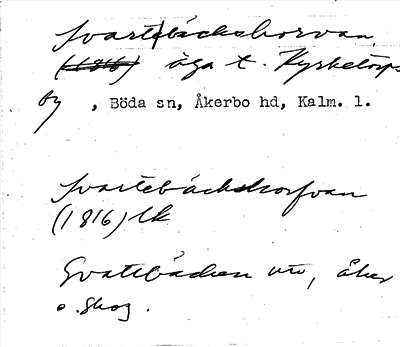 Svartbäckshorvan,
(1816) äga t. Kyrketorps
by , Böda sn, Åkerbo hd, Kalm. l.
Svartebäckshorfvan
(1816) lk
Svartebäcken utr, åker
o. skog.